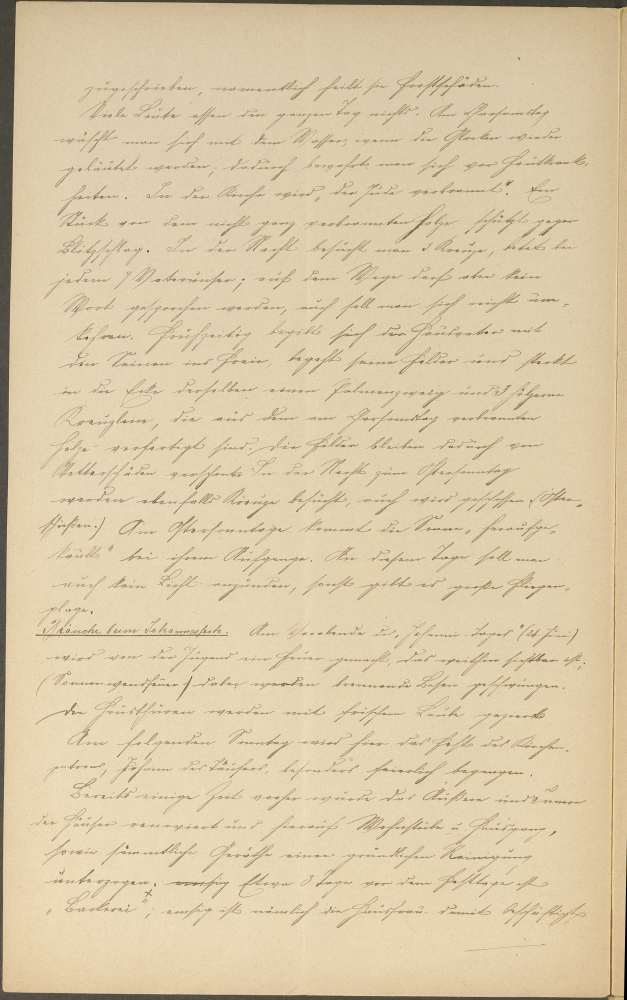 zugeschrieben, namentlich heilt sie Frostschäden.
Viele Leute essen den ganzen Tag nichts. Am Charsamstag
wäscht man sich mit dem Wasser, wenn die Glocken wieder
geläutet werden; dadurch bewahrt man sich vor Hautkrank-
heiten. In der Kirche wird „der Jude verbrannt“. Ein
Stück von dem nicht ganz verbrannten Holze schützt gegen
Blitzschlag. In der Nacht besucht man 3 Kreuze, betet bei
jedem 7 Vaterunser; auf dem Wege darf aber kein
Wort gesprochen werden, auch soll man sich nicht um-
kehren. Frühzeitig begibt sich der Hausvater mit
den Seinen ins Freie, begeht seine Felder und steckt
in die Ecke derselben einen Palmenzweig und 3 hölzerne
Kreuzlein, die aus dem am Charsamstag verbrannten
Holze verfertigt sind. Die Felder bleiben dadurch von
Wetterschäden verschont. In der Nacht zum Ostersonntag
werden ebenfalls Kreuze besucht, auch wird geschossen (Oster-
schießen.) Am Ostersonntage kommt die Sonne „heraufge-
“ bei ihrem Aufgange. An diesem Tage soll man
auch kein Licht anzünden, sonst gibt es große Fliegen-
plage.
Bräuche beim Johannisfeste. Am Vorabende des „Johanni Tages“ (24. Juni)
wird von der Jugend ein Feuer gemacht, das weithin sichtbar ist;
(Sonnenwendfeuer) dabei werden brennende Besen geschwungen.
Die Hausthüren werden mit frischem Laube geziert.
Am folgenden Sonntag wird hier das Fest des Kirchen-
patrons, Johann des Täufers, besonders feierlich begangen.
Bereits einige Zeit vorher wurde das Äußere und Innere
der Häuser renoviert und hierauf Wohnstube u. Hausgang,
sowie sämmtliche Geräthe einer gründlichen Reinigung
unterzogen. Etwa 3 Tage vor dem Festtage ist
„Backerei“; emsig ist nämlich die Hausfrau damit beschäftigt,